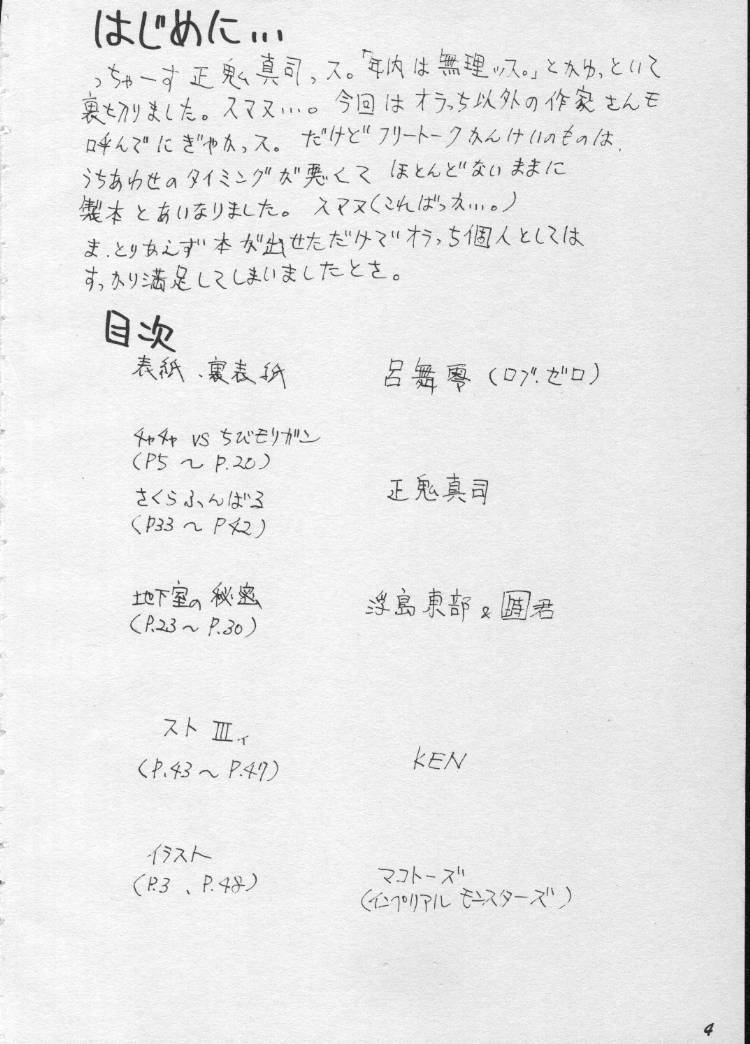 はじめに…
っちゃーす 正鬼真司っス。「年内は無理ッス。」とかゆっといて
裏と刀りました。スマヌ…。今回はオラっち以外の作家さんも
呼んでにぎやかっス。だけどフリートークかんけいのものは、
うちあわせのタイミングが悪くて ほとんどないままに
製本とあいなりました。スマヌ(こればっかい…。)
ま、とりあえず本が出せただけでオラっち個人としては
すっかり満足してしまいましたとさ。
目次
表紙、裏表紙 呂舞零(ロブ・ゼロ)
チャチャ VS ちびモリガン
(P5 〜 P.20)
さくらふんばる 正鬼真司
(P33 〜 P42)
地下室の秘密 浮島東部 & 君
(P.23 〜 P.30)
スト III.イ
(P.43 〜 P.47) KEN
イラスト
(P.3 、P.48) マコトーズ
(インペリアル モンスターズ)
4